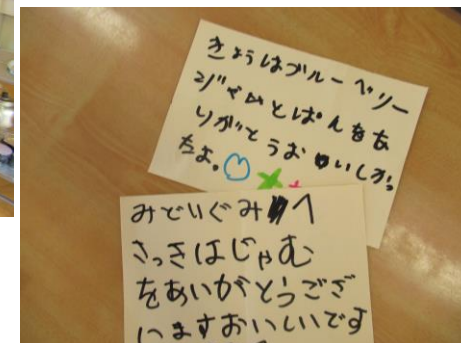 きょうはブルーベリー
ジャムとぱんをあ
りがとうお いしかっ
たよ。
みどりぐみ へ
さっきはじゃむ
をありがとうござ
いますおいしいです